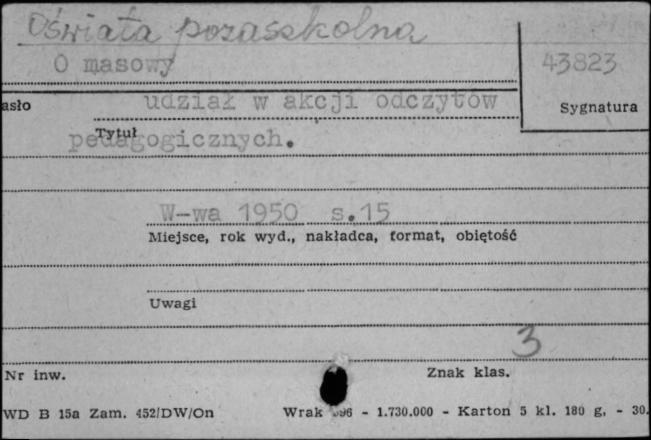 Oświata pozaszkolna
O masowy 43823
asło udział w akcji odczytów Sygnatura
Tytuł
pedagogicznych.
W-wa 1950 s.15
Miejsce, rok wyd., nakładca, format, obiętość
Uwagi
3
Nr inw. Znak klas.
WD B 15a Zam. 452/DW/On Wrak 96 - 1.730.000 - Karton 5 kl. 180 g, - 30.